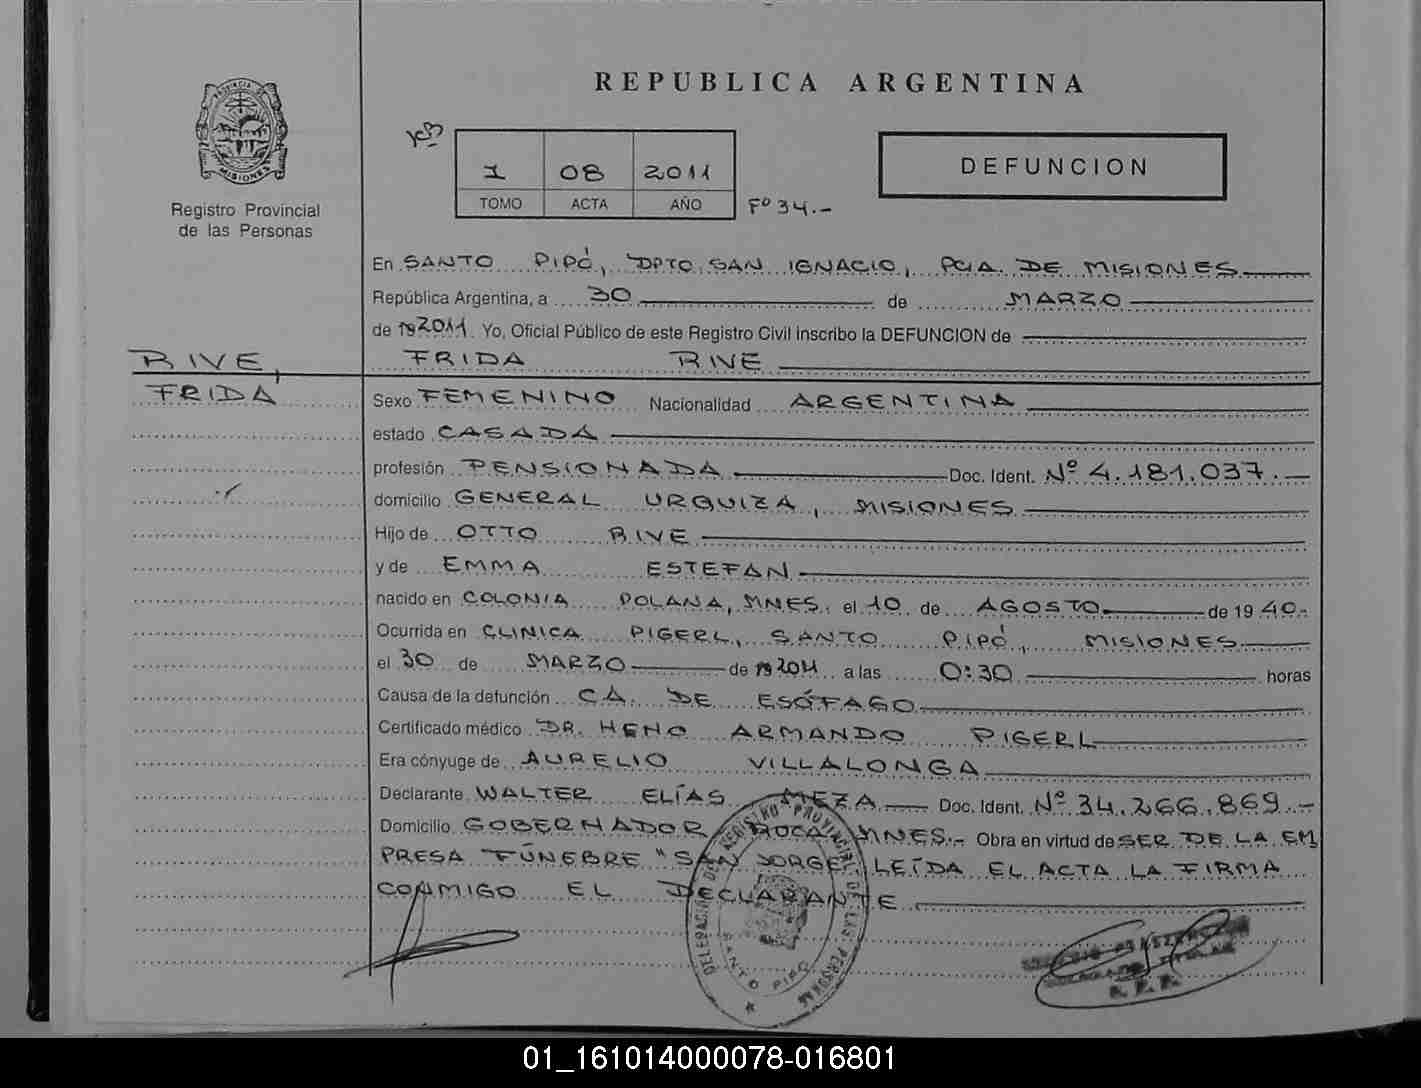 REPUBLICA ARGENTINA
PROVINCIA DE
MISIONES
Registro Provincial
de las Personas
1 08 2011
TOMO ACTA AÑO
Fº 34.-
DEFUNCION
En SANTO PIPÓ, DPTO. SAN IGNACIO, PCIA. DE MISIONES
República Argentina, a 30 de MARZO
de 19 2011. Yo, Oficial Público de este Registro Civil inscribo la DEFUNCION de
RIVE,
FRIDA
FRIDA RIVE
Sexo FEMENINO Nacionalidad ARGENTINA
estado CASADA
profesión PENSIONADA Doc. Ident. Nº 4.181.037.-
domicilio GENERAL URQUIZA, MISIONES
Hijo de OTTO RIVE
y de EMMA ESTEFAN
nacido en COLONIA POLANA, MNES. el 10 de AGOSTO de 1940.-
Ocurrida en CLINICA PIGERL, SANTO PIPÓ, MISIONES
el 30 de MARZO de 19 2011 a las 0:30 horas
Causa de la defunción CA. DE ESÓFAGO
Certificado médico DR. HENO ARMANDO PIGERL
Era cónyuge de AURELIO VILLALONGA
Declarante WALTER ELÍAS MEZA Doc. Ident. Nº 34.266.869.-
Domicilio GOBERNADOR ROCA MNES.- Obra en virtud de SER DE LA EM
PRESA FÚNEBRE "SAN JORGE" LEÍDA EL ACTA LA FIRMA
CONMIGO EL DECLARANTE
DELEGACION DEL REGISTRO PROVINCIAL DE LAS PERSONAS
SANTO PIPO
01_161014000078-016801